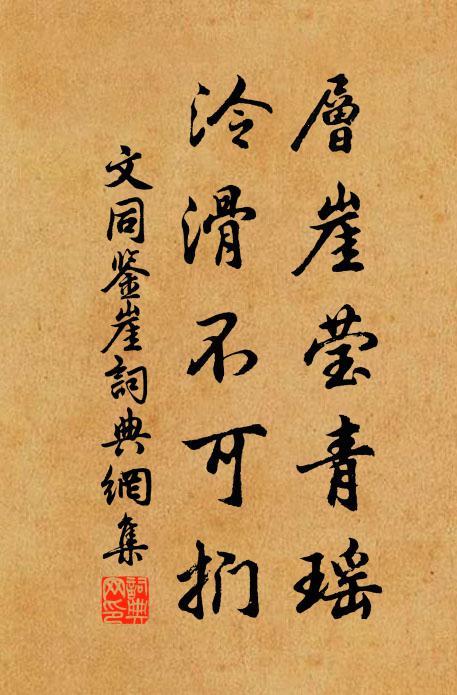 層崖莹青瑶
泠滑不可捫
文同鉴崖詞典網集
詞典網印